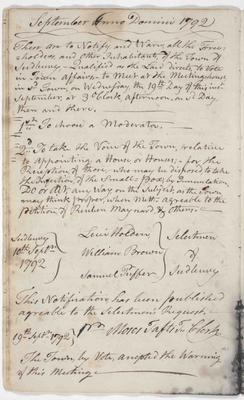 September Anno Domini 1792
These are to Notify and Warn all the Free-
holders and Other Inhabitants, of the Town of
Sudbury Qualified as the Law directs, to Vote
in Town Affairs, to Meet at the Meetinghouse
in sd Town, on Wednesday, the 19th Day of this inst
September, at 3 oClock, afternoon, on sd Day
then and there.
1st To choose a Moderator.
2d To take the Vote of the Town, relative
to appointing a House or Houses, for the
Reception of those, who may be disposed to take
the Infection of the Small Pox, by Innoculation
Do or Act, any Way on the Subject as the Town
may think proper, when Mett; agreable to the
Petition of Reuben Maynard & Others;
Sudbury
10th Septr
1792
Levi Holden
William Brown
Samuel Puffer
Selectmen
of
Sudbury
This Notification has been published
agreable to the Selectmens Request.
19th Septr 1792 Pr Moses Taft Tn Clerk
The Town, by Vote, accepted the Warning
of this Meeting